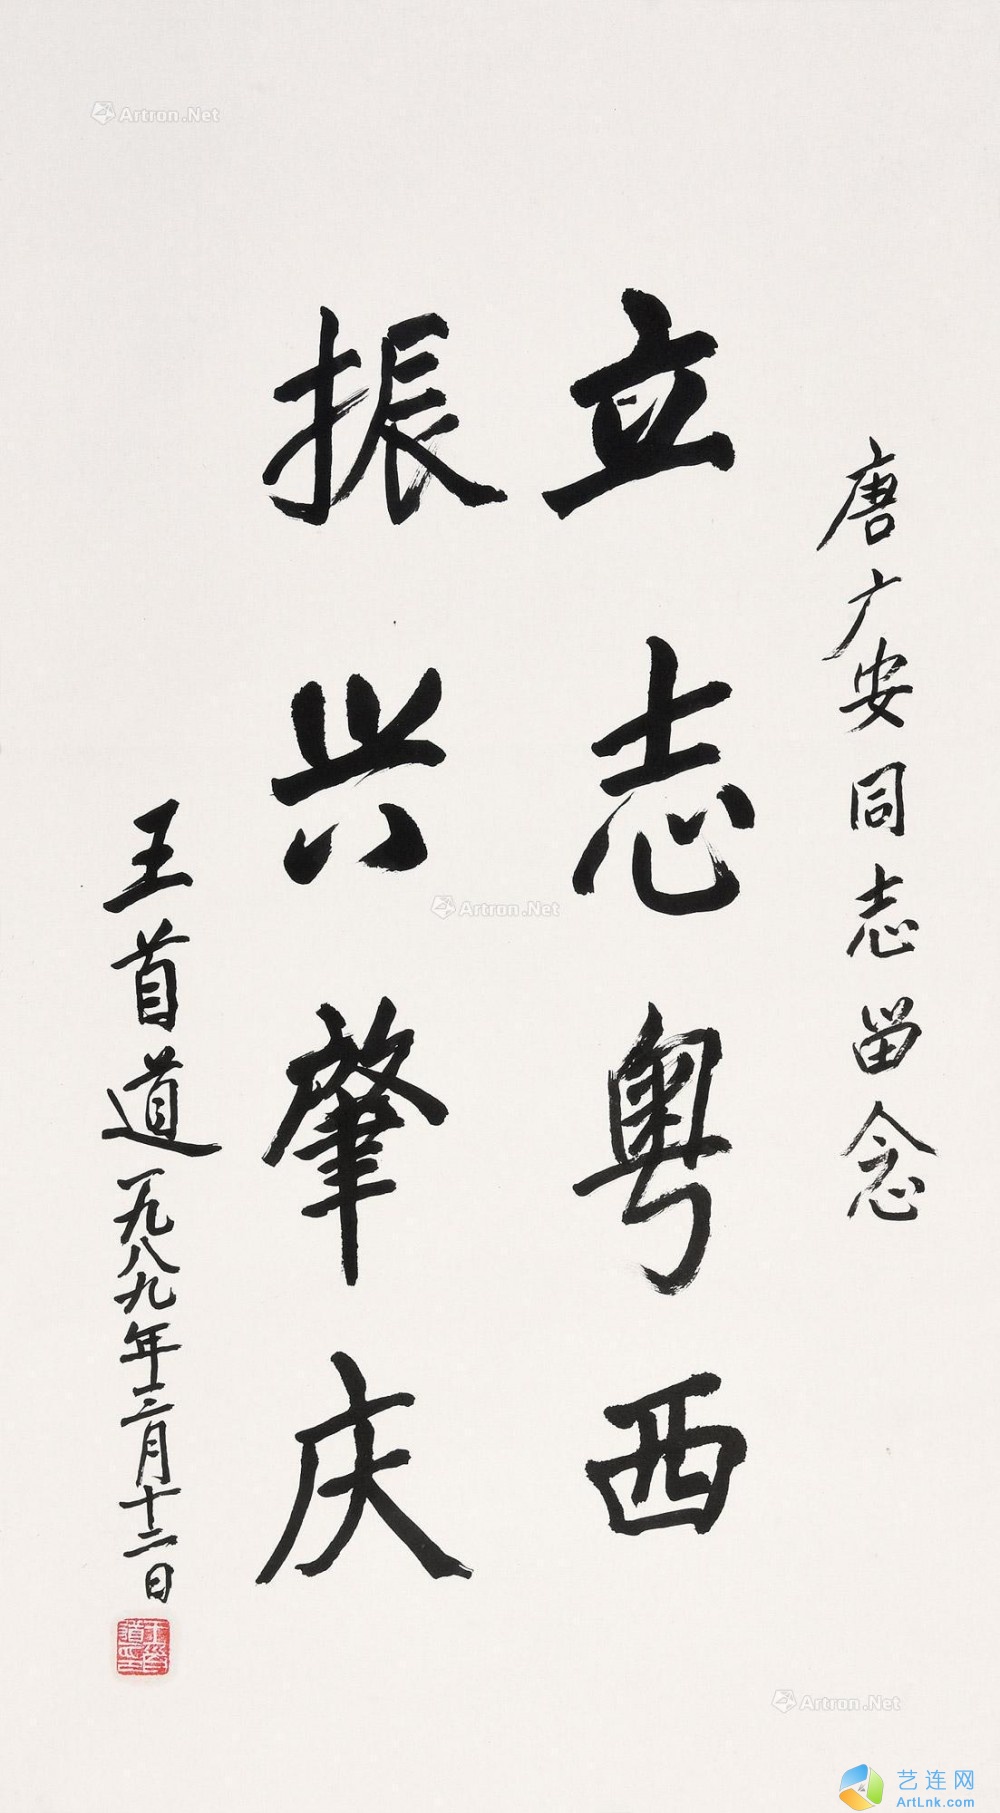 唐广安同志留念
立志粤西
振兴肇庆
王首道一九八九年三月十二日
王首道印
Artron.Net
Artron.Net
Artron.Net
艺连网
ArtLnk.com